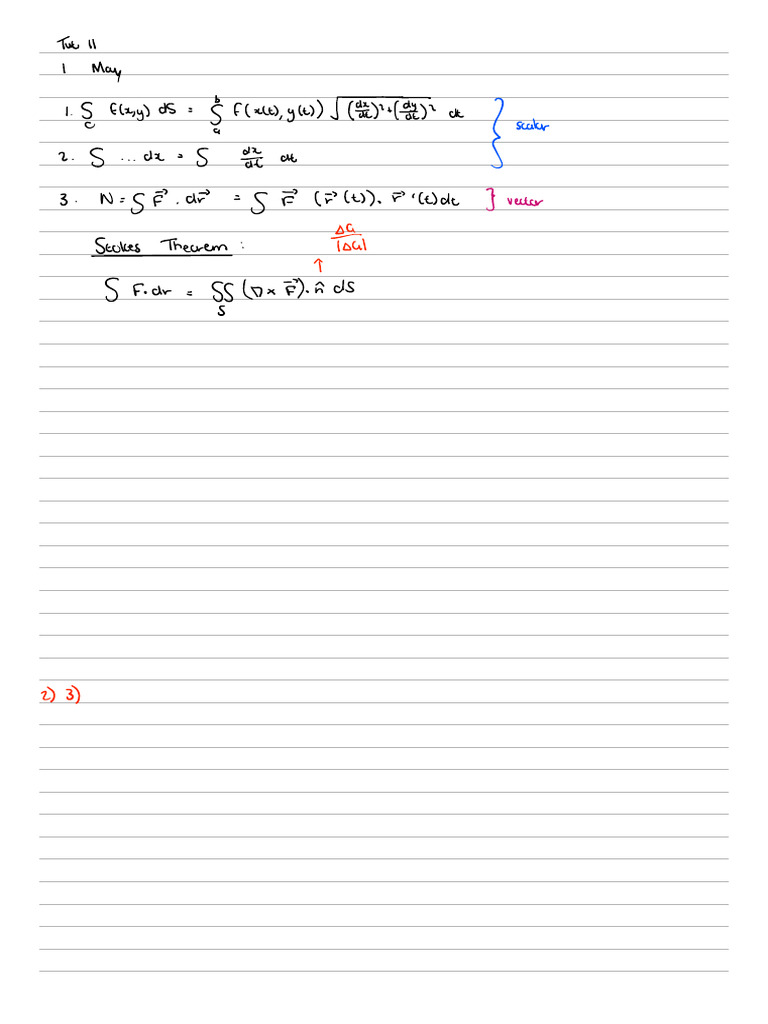 Tut 11
1 May
1. ∫_C f(x,y) dS = ∫_a^b f(x(t), y(t)) √((dx/dt)² + (dy/dt)²) dt
scalar
2. ∫ ... dx = ∫ dx/dt dt
3. N = ∫ F⃗ . dr⃗ = ∫ F⃗ (r⃗(t)). r⃗'(t) dt
vector
Stokes Theorem :
ΔG/|ΔG|
↑
∫ F.dr = ∬_S (∇ × F⃗). n̂ dS
2) 3)